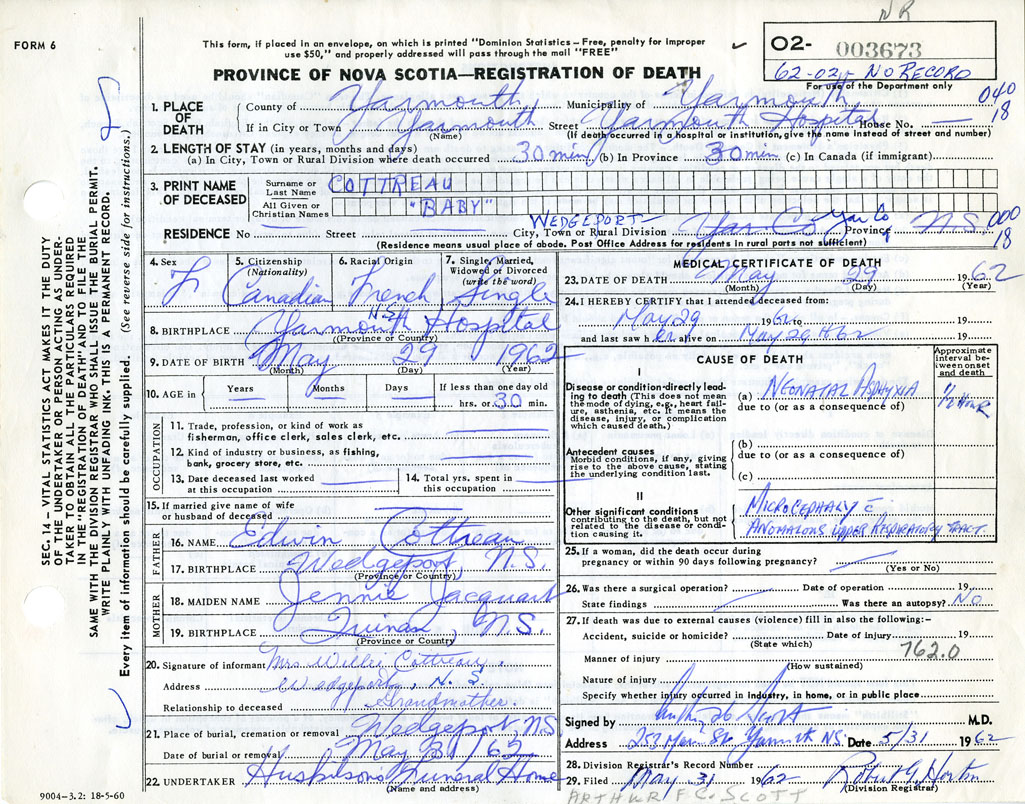 NR
FORM 6
This form, if placed in an envelope, on which is printed "Dominion Statistics—Free, penalty for improper
use $50," and properly addressed will pass through the mail "FREE"
02- 003673
62-02 NO RECORD
For use of the Department only
PROVINCE OF NOVA SCOTIA—REGISTRATION OF DEATH
040
18
1. PLACE OF DEATH County of Yarmouth, Municipality of Yarmouth,
If in City or Town Yarmouth Street Yarmouth Hospital House No. —
(Name) (If death occurred in a hospital or institution, give the name instead of street and number)
2. LENGTH OF STAY (in years, months and days)
(a) In City, Town or Rural Division where death occurred 30 min. (b) In Province 30 min. (c) In Canada (if immigrant)
3. PRINT NAME OF DECEASED Surname or Last Name COTTREAU
All Given or Christian Names "BABY"
RESIDENCE No Street City, Town or Rural Division WEDGEPORT— Yar. Co. Yar Co Province N.S. 000
18
(Residence means usual place of abode. Post Office Address for residents in rural parts not sufficient)
4. Sex F
5. Citizenship (Nationality) Canadian
6. Racial Origin French
7. Single, Married, Widowed or Divorced (write the word) Single
8. BIRTHPLACE Yarmouth Hospital N.S.
(Province or Country)
9. DATE OF BIRTH May 29 1962
(Month) (Day) (Year)
10. AGE in Years Months Days If less than one day old
hrs. or 30 min.
OCCUPATION
11. Trade, profession, or kind of work as
fisherman, office clerk, sales clerk, etc.
12. Kind of industry or business, as fishing,
bank, grocery store, etc.
13. Date deceased last worked
at this occupation
14. Total yrs. spent in
this occupation
15. If married give name of wife
or husband of deceased
FATHER
16. NAME Edwin Cottreau
17. BIRTHPLACE Wedgeport, N.S.
(Province or Country)
MOTHER
18. MAIDEN NAME Jennie Jacquard
19. BIRTHPLACE Quinan N.S.
(Province or Country)
20. Signature of informant Mrs. Willie Cottreau.
Address Wedgeport, N.S.
Relationship to deceased Grandmother.
21. Place of burial, cremation or removal Wedgeport N.S
Date of burial or removal May 31/62
22. UNDERTAKER Huskilson's Funeral Home
(Name and address)
9004-3.2: 18-5-60
MEDICAL CERTIFICATE OF DEATH
23. DATE OF DEATH May 29 1962
(Month) (Day) (Year)
24. I HEREBY CERTIFY that I attended deceased from:
May 29 1962 to 19
and last saw her alive on May 29 62 19
CAUSE OF DEATH
Approximate
interval be-
tween onset
and death
I
Disease or condition directly lead-
ing to death (This does not mean
the mode of dying, e.g., heart fail-
ure, asthenia, etc. It means the
disease, injury, or complication
which caused death.)
(a) NEONATAL ASPHYXIA 1/2 HOUR
due to (or as a consequence of)
Antecedent causes
Morbid conditions, if any, giving
rise to the above cause, stating
the underlying condition last.
(b)
due to (or as a consequence of)
(c)
II
Other significant conditions
contributing to the death, but not
related to the disease or condi-
tion causing it.
MICROCEPHALY c̄
ANOMALOUS UPPER RESPIRATORY TRACT.
25. If a woman, did the death occur during
pregnancy or within 90 days following pregnancy?
(Yes or No)
26. Was there a surgical operation? Date of operation 19
State findings Was there an autopsy? No
27. If death was due to external causes (violence) fill in also the following:—
Accident, suicide or homicide? Date of injury 19
(State which)
762.0
Manner of injury
(How sustained)
Nature of injury
Specify whether injury occurred in industry, in home, or in public place
Signed by Arthur F C Scott M.D.
Address 253 Main St. Yarmouth NS. Date 5/31 1962
28. Division Registrar's Record Number
29. Filed May 31 1962 Robert G. Horton
(Division Registrar)
ARTHUR F. C. SCOTT
SEC. 14—VITAL STATISTICS ACT MAKES IT THE DUTY
OF THE UNDERTAKER OR PERSON ACTING AS UNDER-
TAKER "TO OBTAIN ALL THE PARTICULARS REQUIRED
IN THE "REGISTRATION OF DEATH" AND TO FILE THE
SAME WITH THE DIVISION REGISTRAR WHO SHALL ISSUE THE BURIAL PERMIT.
WRITE PLAINLY WITH UNFADING INK. THIS IS A PERMANENT RECORD.
Every item of information should be carefully supplied. (See reverse side for instructions.)